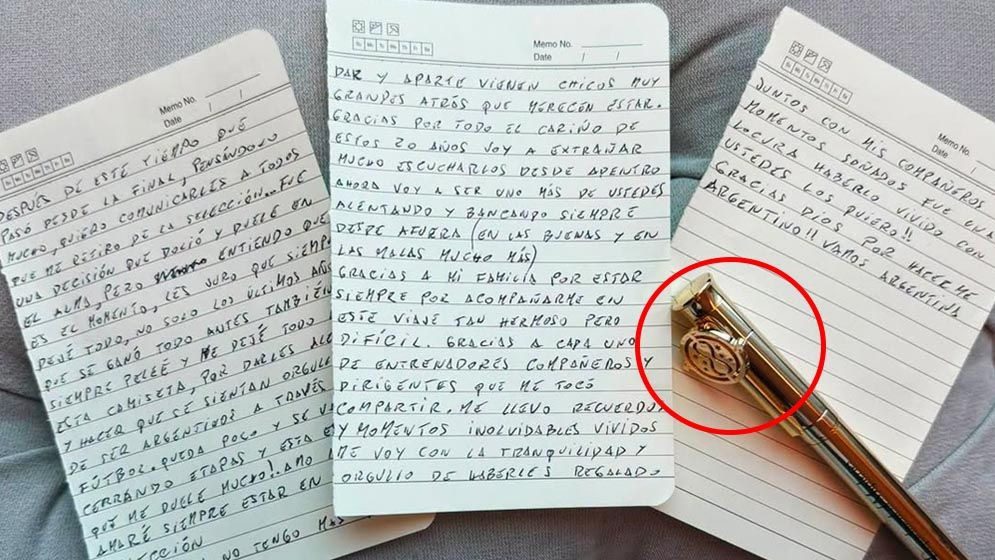 Memo No.
Date / /
DESPUES DE ESTE TIEMPO QUE
PASÓ DESDE LA FINAL, PENSÁNDOLO
MUCHO, QUIERO COMUNICARLES A TODOS
QUE ME RETIRO DE LA SELECCIÓN.. FUE
UNA DECISIÓN QUE DOLIÓ Y DUELE EN
EL ALMA, PERO ENTIENDO QUE
ES EL MOMENTO, LES JURO QUE SIEMPRE
DEJÉ TODO, NO SOLO LOS ULTIMOS AÑOS
QUE SE GANÓ TODO ANTES TAMBIÉN
SIEMPRE PELEÉ Y ME DEJÉ TODO
ESTA CAMISETA, POR DARLES
Y HACER QUE SE SIENTAN
DE SER ARGENTINOS A TRAVÉS
FÚTBOL. QUEDA POCO Y SE
CERRANDO ETAPAS Y ESTA
QUE ME DUELE MUCHO!. AMO
AMARÉ SIEMPRE ESTAR EN
NO TENGO MAS
Memo No.
Date / /
Su Mo Tu We Th Fr Sa
DAR Y APARTE VIENEN CHICOS MUY
GRANDES ATRÁS QUE MERECEN ESTAR.
GRACIAS POR TODO EL CARIÑO DE
ESTOS 20 AÑOS VOY A EXTRAÑAR
MUCHO ESCUCHARLOS DESDE ADENTRO
AHORA VOY A SER UNO MÁS DE USTEDES
ALENTANDO Y BANCANDO SIEMPRE
DESDE AFUERA (EN LAS BUENAS Y EN
LAS MALAS MUCHO MÁS)
GRACIAS A MI FAMILIA POR ESTAR
SIEMPRE POR ACOMPAÑARME EN
ESTE VIAJE TAN HERMOSO PERO
DIFÍCIL. GRACIAS A CADA UNO
DE ENTRENADORES COMPAÑEROS Y
DIRIGENTES QUE ME TOCÓ
COMPARTIR. ME LLEVO RECUERDOS
Y MOMENTOS INOLVIDABLES VIVIDOS
ME VOY CON LA TRANQUILIDAD Y
ORGULLO DE HABERLES REGALADO
Memo No.
Date / /
JUNTOS CON MIS COMPAÑEROS
MOMENTOS SOÑADOS FUE UNA
LOCURA HABERLO VIVIDO CON
USTEDES LOS QUIERO!!
GRACIAS DIOS POR HACERME
ARGENTINO!! VAMOS ARGENTINA